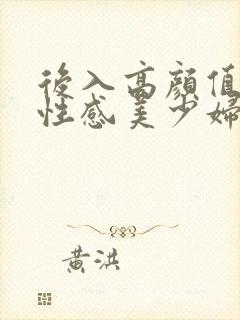 後入高顏值
性感美少婦
黃洪